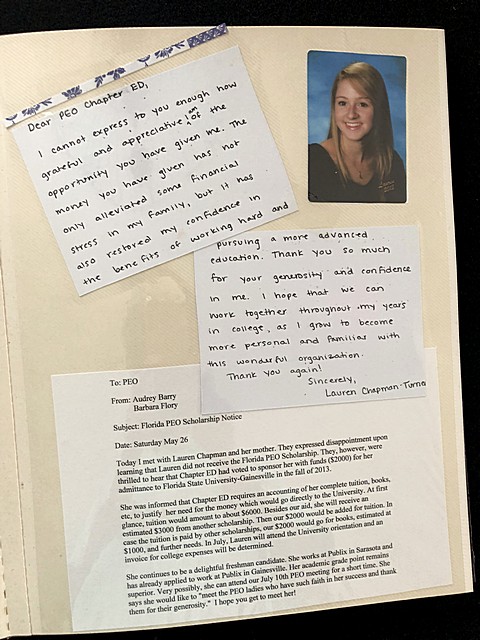 Dear PEO Chapter ED,
I cannot express to you enough how
grateful and appreciative I am of the
opportunity you have given me. The
money you have given has not
only alleviated some financial
stress in my family, but it has
also restored my confidence in
the benefits of working hard and
pursuing a more advanced
education. Thank you so much
for your generosity and confidence
in me. I hope that we can
work together throughout my years
in college, as I grow to become
more personal and familiar with
this wonderful organization.
Thank you again!
Sincerely,
Lauren Chapman-Turne
To: PEO
From: Audrey Barry
Barbara Flory
Subject: Florida PEO Scholarship Notice
Date: Saturday May 26
Today I met with Lauren Chapman and her mother. They expressed disappointment upon
learning that Lauren did not receive the Florida PEO Scholarship. They, however, were
thrilled to hear that Chapter ED had voted to sponsor her with funds ($2000) for her
admittance to Florida State University-Gainesville in the fall of 2013.
She was informed that Chapter ED requires an accounting of her complete tuition, books,
etc, to justify her need for the money which would go directly to the University. At first
glance, tuition would amount to about $6000. Besides our aid, she will receive an
estimated $3000 from another scholarship. Then our $2000 would be added for tuition. In
case the tuition is paid by other scholarships, our $2000 would go for books, estimated at
$1000, and further needs. In July, Lauren will attend the University orientation and an
invoice for college expenses will be determined.
She continues to be a delightful freshman candidate. She works at Publix in Sarasota and
has already applied to work at Publix in Gainesville. Her academic grade point remains
superior. Very possibly, she can attend our July 10th PEO meeting for a short time. She
says she would like to "meet the PEO ladies who have such faith in her success and thank
them for their generosity." I hope you get to meet her!